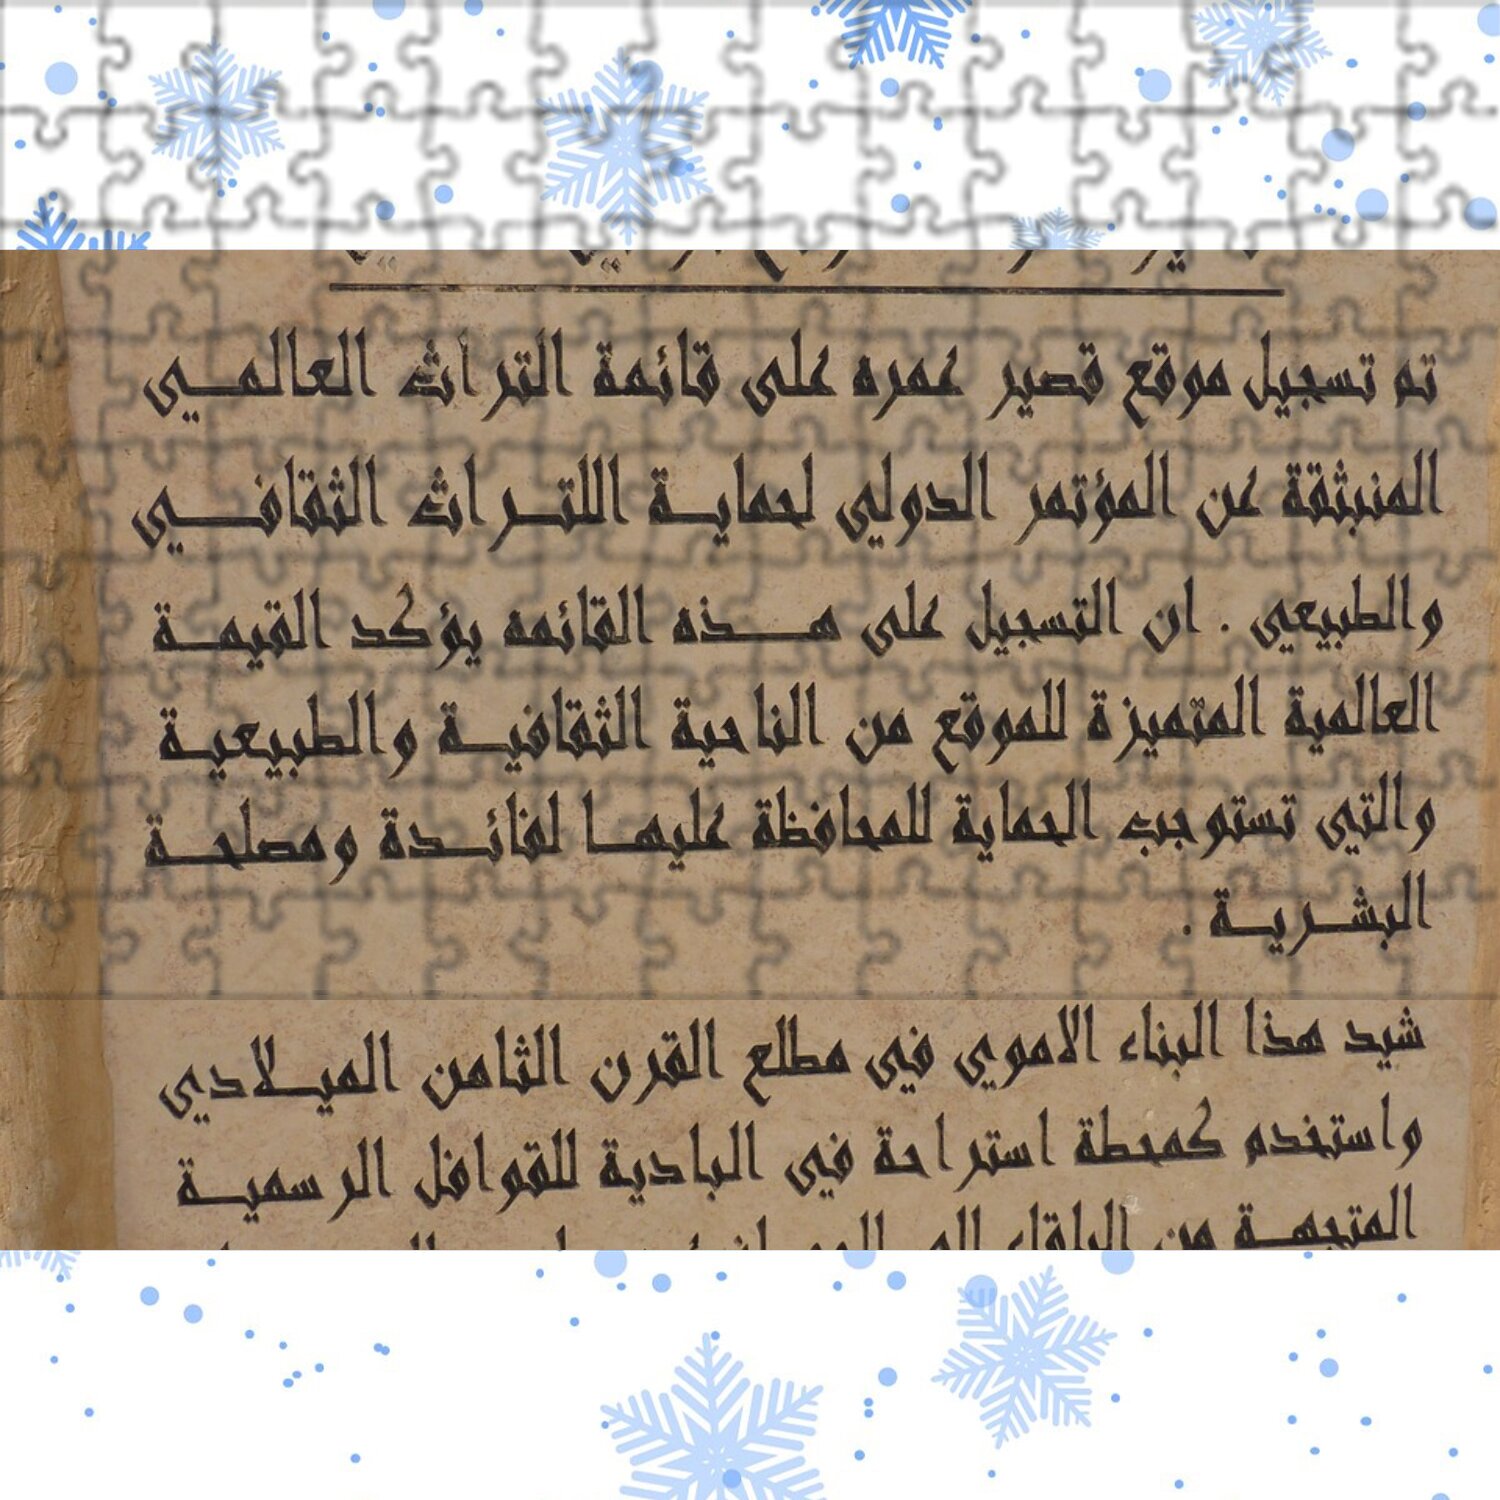 تم تسجيل موقع قصير عمره على قائمة التراث العالمـي
المنبثقة عن المؤتمر الدولي لحمايـة اللتـراث الثقافـي
والطبيعي . ان التسجيل على هـذه القائمه يؤكد القيمـة
العالمية المتميزة للموقع من الناحية الثقافيـة والطبيعيـة
والتي تستوجب الحماية للمحافظة عليهـا لفائـدة ومصلحـة
البشـريـة .
شيد هذا البناء الاموي في مطلع القرن الثامن الميـلادي
واستخدم كمحطة استراحة في البادية للقوافل الرسميـة
المتجهـة من البلقاء الى